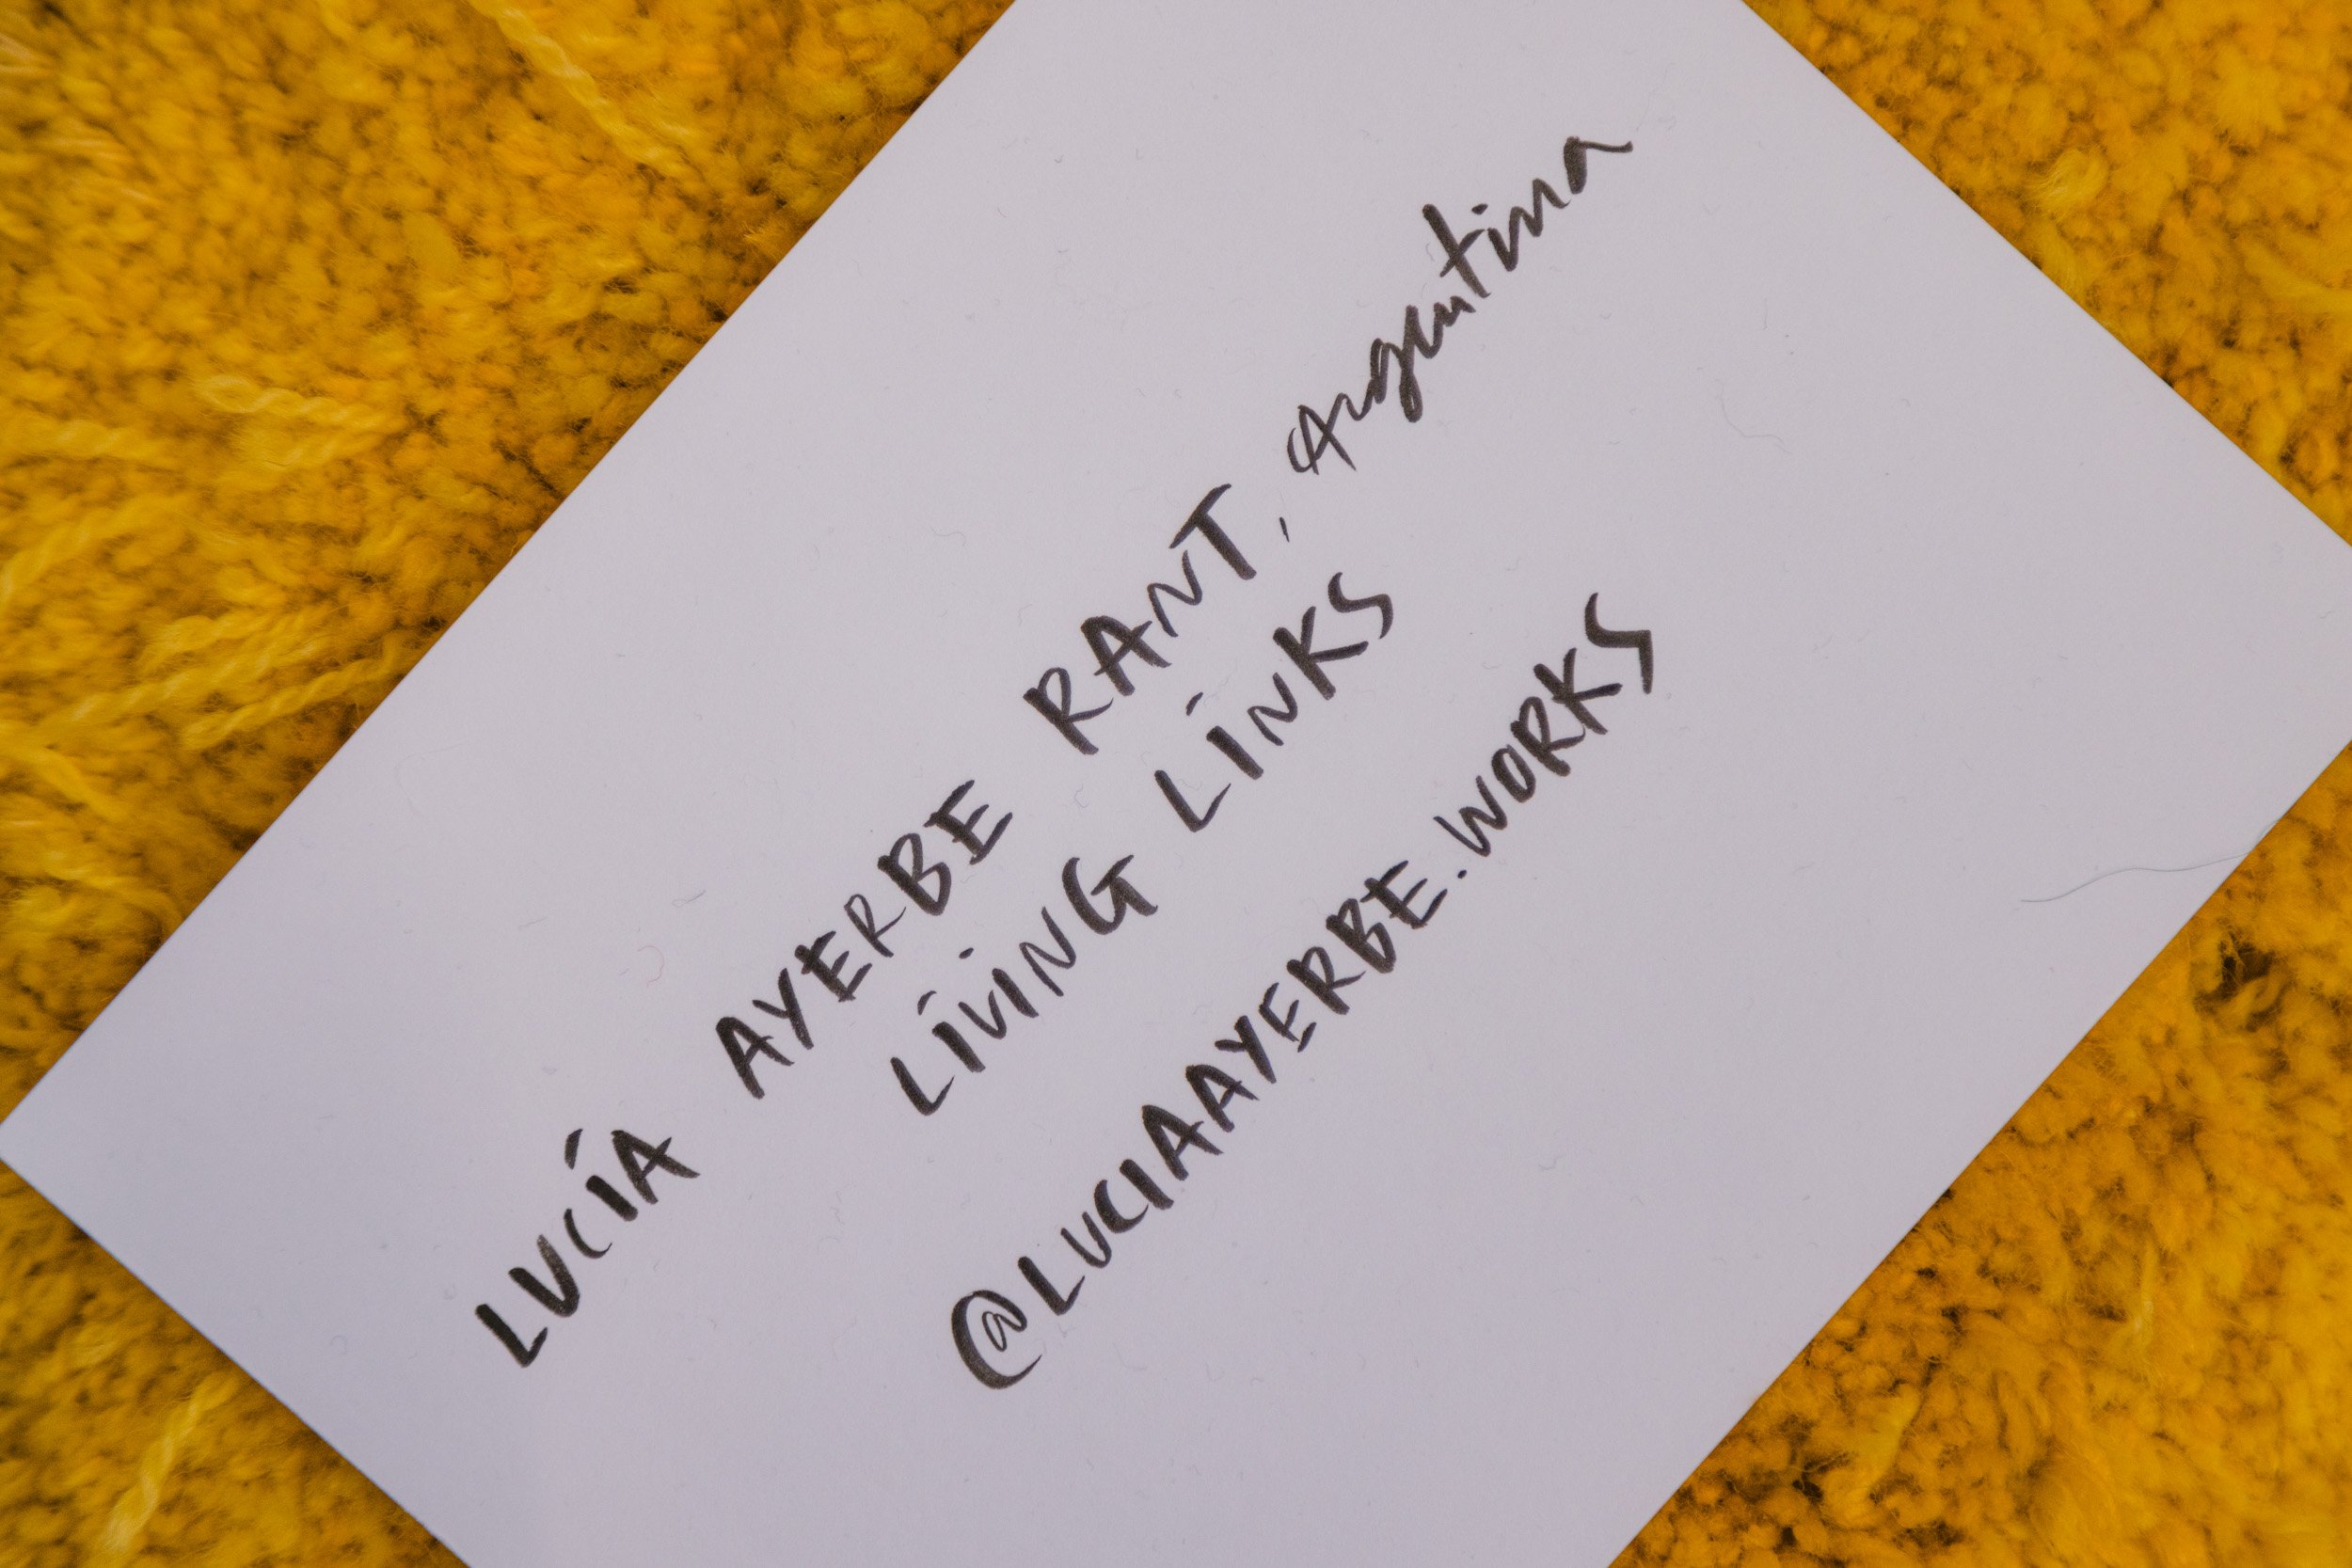 LUCÍA AYERBE RANT, Argentina
LIVING LINKS
@LUCIAAYERBE.WORKS